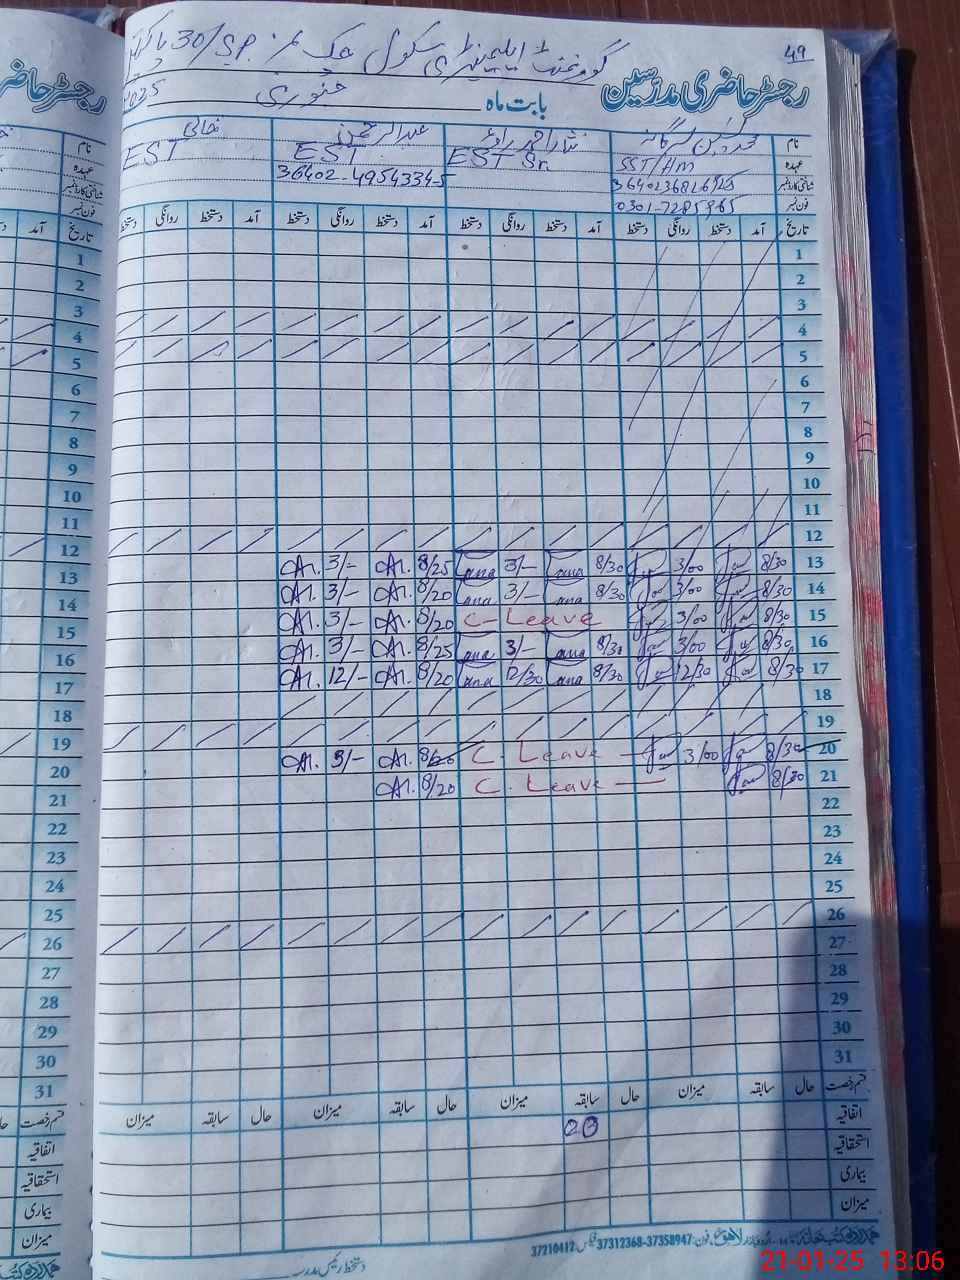 49
گورنمنٹ ایلیمنٹری سکول چک نمبر 30/SP
رجسٹر حاضری مدرسین
بابت ماہ جنوری 2025
نام
عبدالرحمن
خالی
عہدہ SST/HM
EST Sr.
EST
EST
شناختی کارڈ نمبر
36402-4954334-5
فون نمبر 0301-7285965
تاریخ آمد دستخط روانگی دستخط آمد دستخط روانگی دستخط آمد دستخط روانگی دستخط آمد دستخط روانگی دستخط
1
2
3
4
5
6
7
8
9
10
11
12
13 8/30 3/00 8/30 3/- 8/25 3/-
14 8/30 3/00 8/30 3/- 8/20 3/-
15 8/30 3/00 C-Leave 8/20 3/-
16 8/30 3/00 8/30 3/- 8/25 3/-
17 8/30 12/30 8/30 12/30 8/20 12/-
18
19
20 8/30 3/00 C. Leave 8/20 3/-
21 8/30 C. Leave 8/20
22
23
24
25
26
27
28
29
30
31
قسم رخصت حال سابقہ میزان حال سابقہ میزان حال سابقہ میزان حال سابقہ میزان
اتفاقیہ 20
استحقاقیہ
بیماری
میزان
دستخط رئیس مدرسہ
فون: 37358947-37312368 فیکس: 37210412
رجسٹر حاضری
نام
عہدہ
شناختی کارڈ نمبر
فون نمبر
تاریخ آمد
1
2
3
4
5
6
7
8
9
10
11
12
13
14
15
16
17
18
19
20
21
22
23
24
25
26
27
28
29
30
31
قسم رخصت حال
اتفاقیہ
استحقاقیہ
بیماری
میزان
21-01-25 13:06